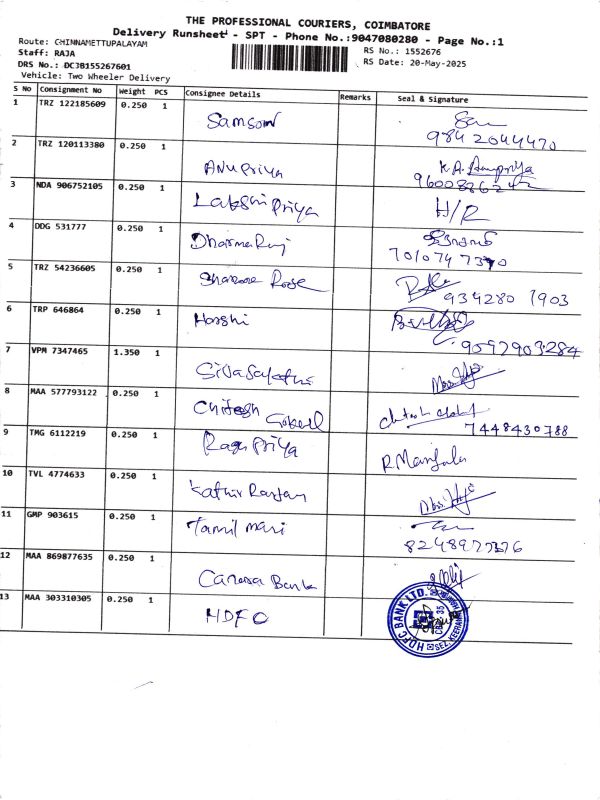 THE PROFESSIONAL COURIERS, COIMBATORE
Delivery Runsheet - SPT - Phone No.:9047080280 - Page No.:1
Route: CHINNAMETTUPALAYAM
Staff: RAJA
DRS No.: DCJB155267601
Vehicle: Two Wheeler Delivery
RS No.: 1552676
RS Date: 20-May-2025
S No Consignment No Weight PCS Consignee Details Remarks Seal & Signature
1 TRZ 122185609 0.250 1 Samson 9842044470
2 TRZ 120113380 0.250 1 Anupriya K.A. Anupriya
3 NDA 906752105 0.250 1 Lakshi Priya H/R
4 DDG 531777 0.250 1 Dharma Raj
5 TRZ 54236605 0.250 1 Rose 934280 1903
6 TRP 646864 0.250 1 Harshi 9092903284
7 VPM 7347465 1.350 1 Sivasakthi
8 MAA 577793122 0.250 1 Chitesh 7448430788
9 TMG 6112219 0.250 1 Raga Priya R. Manjula
10 TVL 4774633 0.250 1 Kathir
11 GMP 903615 0.250 1 Tamil mari
12 MAA 869877635 0.250 1 Canara Bank
13 MAA 303310305 0.250 1 HDFC HDFC BANK LTD.